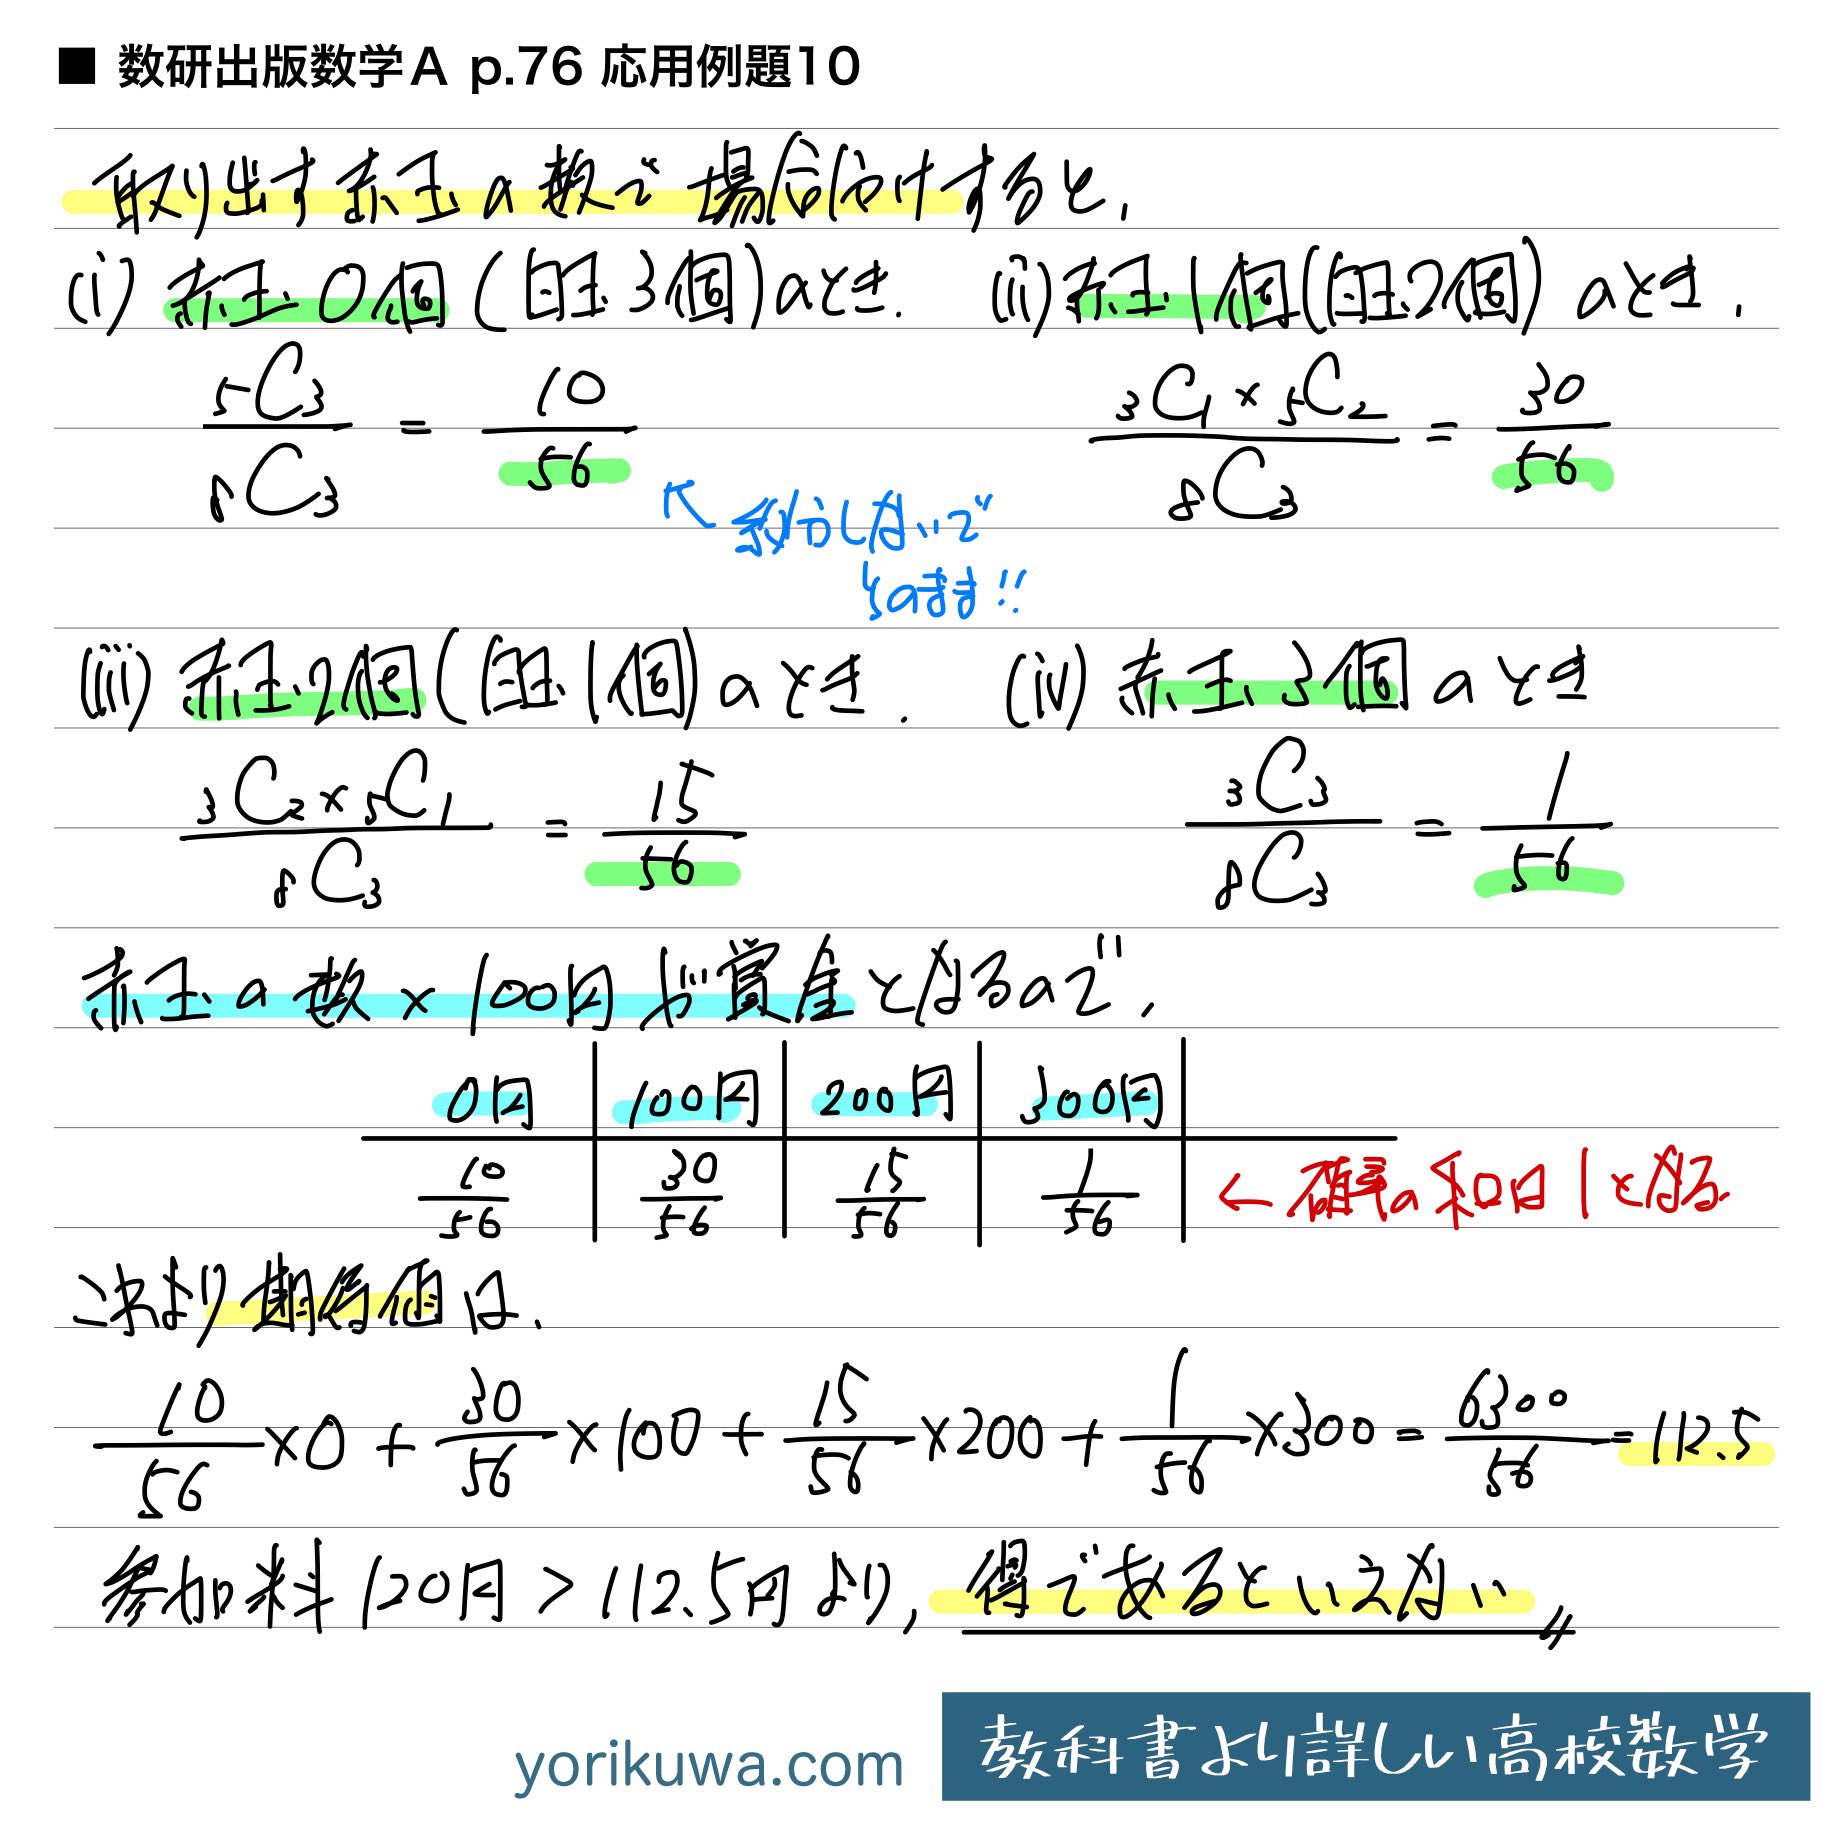 ■ 数研出版数学A p.76 応用例題10
取り出す赤玉の数で場合分けすると,
(i) 赤玉0個(白玉3個)のとき.
(ii) 赤玉1個(白玉2個)のとき.
5C3/8C3 = 10/56
3C1×5C2/8C3 = 30/56
↖ 約分しないで
そのまま!!
(iii) 赤玉2個(白玉1個)のとき.
(iv) 赤玉3個のとき
3C2×5C1/8C3 = 15/56
3C3/8C3 = 1/56
赤玉の数×100円が賞金となるので,
0円 100円 200円 300円
10/56 30/56 15/56 1/56 ← 確率の和は1となる
次より期待値は,
10/56×0 + 30/56×100 + 15/56×200 + 1/56×300 = 6300/56 = 112.5
参加料120円 > 112.5円より, 得であるといえない〃
yorikuwa.com
教科書より詳しい高校数学